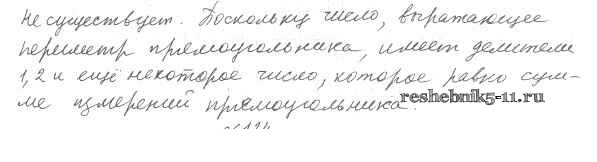 Не существует. Поскольку число, выражающее
периметр прямоугольника, имеет делители
1, 2 и ещё некоторое число, которое равно сум-
ме измерений прямоугольника.
reshebnik5-11.ru